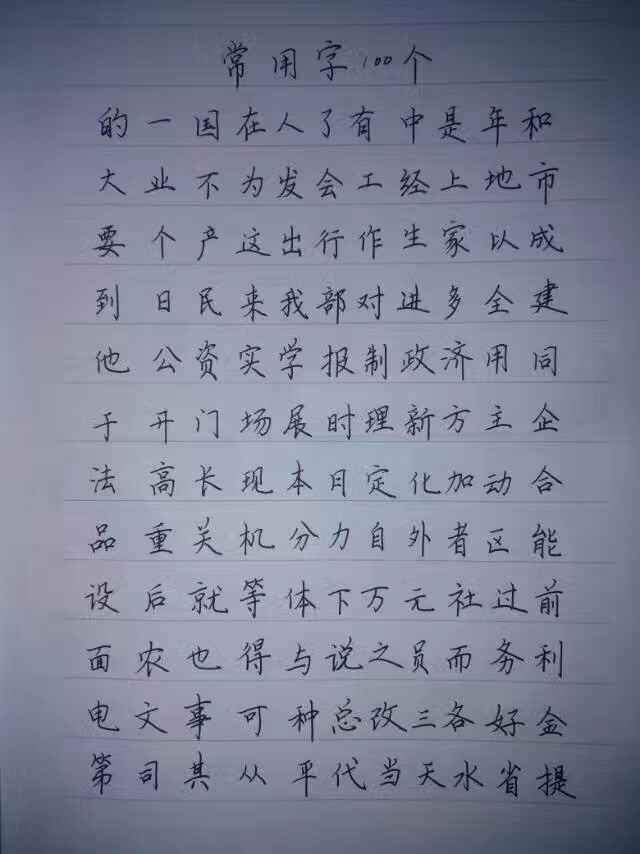 常用字100个
的一国在人了有中是年和
大业不为发会工经上地市
要个产这出行作生家以成
到日民来我部对进多全建
他公资实学报制政济用同
于开门场展时理新方主企
法高长现本月定化加动合
品重关机分力自外者区能
设后就等体下万元社过前
面农也得与说之员而务利
电文事可种总改三各好金
第司其从平代当天水省提